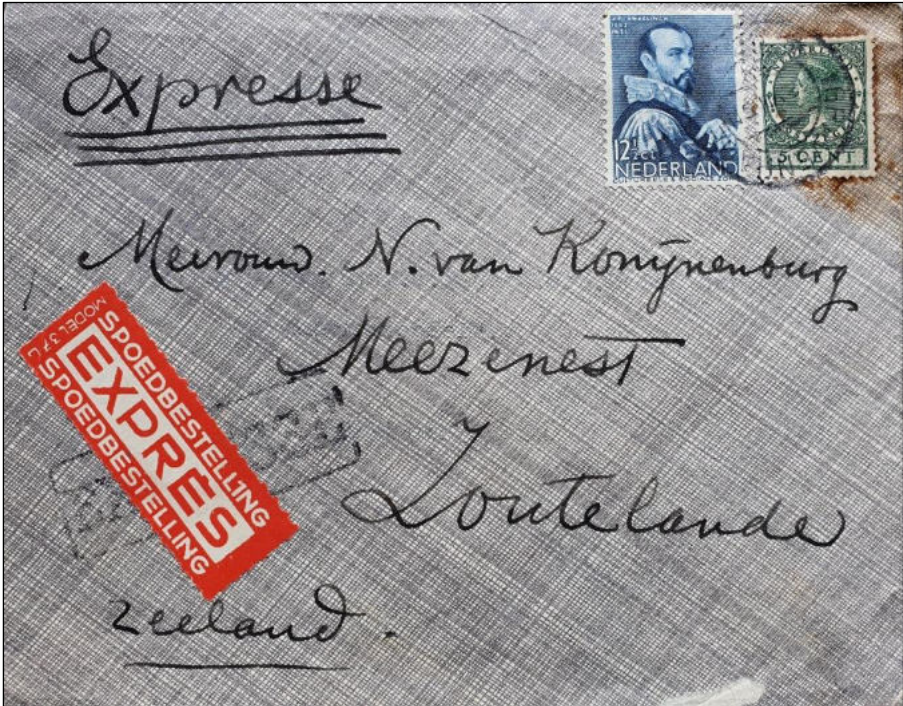 Expresse
J.P. SWEELINCK
12½ ct
NEDERLAND
NEDERLAND
5 CENT
Mevrouw. N. van Konijnenburg
Meezenest
Zoutelande
Zeeland.
MODEL 37
SPOEDBESTELLING
EXPRES
SPOEDBESTELLING